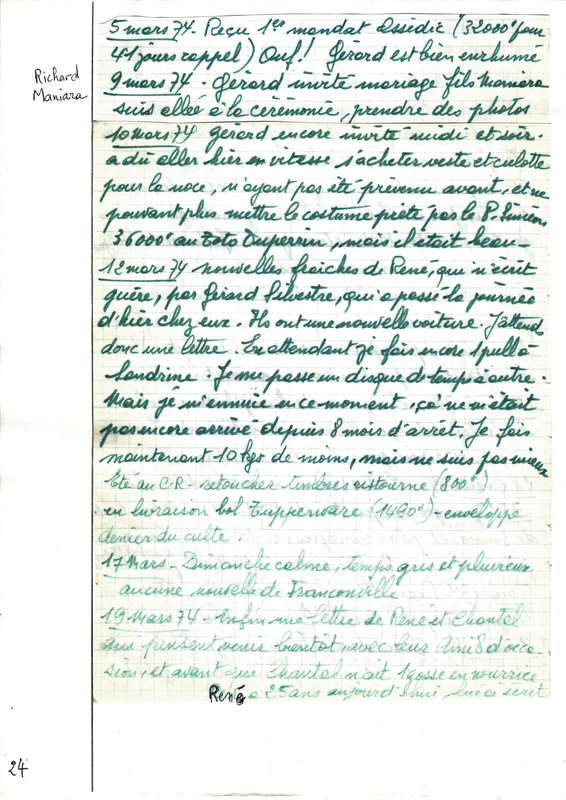 Richard
Maniara
5 mars 74. Reçu 1er mandat Assedic (32000f pour
41 jours rappel) Ouf! Gérard est bien enrhumé
9 mars 74. Gérard invité mariage fils Maniara
suis allée à la cérémonie, prendre des photos
10 mars 74 Gérard encore invité midi et soir.
a dû aller hier en vitesse s'acheter veste et culotte
pour la noce, n'ayant pas été prévenu avant, et ne
pouvant plus mettre le costume prêté par le P. Siméon
36000f au Toto Duperrin, mais il était beau_
12 mars 74 nouvelles fraîches de René, qui n'écrit
guère, par Gérard Silvestre, qui a passé la journée
d'hier chez eux. Ils ont une nouvelle voiture. J'attends
donc une lettre. En attendant je fais encore 1 pull à
Sandrine. Je me passe un disque de temps à autre.
Mais je m'ennuie en ce moment, ça ne m'était
pas encore arrivé depuis 8 mois d'arrêt. Je fais
maintenant 10 kgs de moins, mais ne suis pas mieux
Été au C.R. timbres ristourne (800f)
en livraison bol Tupperware (1490f) - enveloppe
denier du culte.
17 Mars - Dimanche calme, temps gris et pluvieux
aucune nouvelle de Franconville
19 Mars 74 - Enfin une lettre de René et Chantal
qui pensent venir bientôt, avec leur Ami 8 d'occa-
sion, et avant que Chantal n'ait 1 gosse en nourrice
René a 25 ans aujourd'hui, lui ai écrit
24